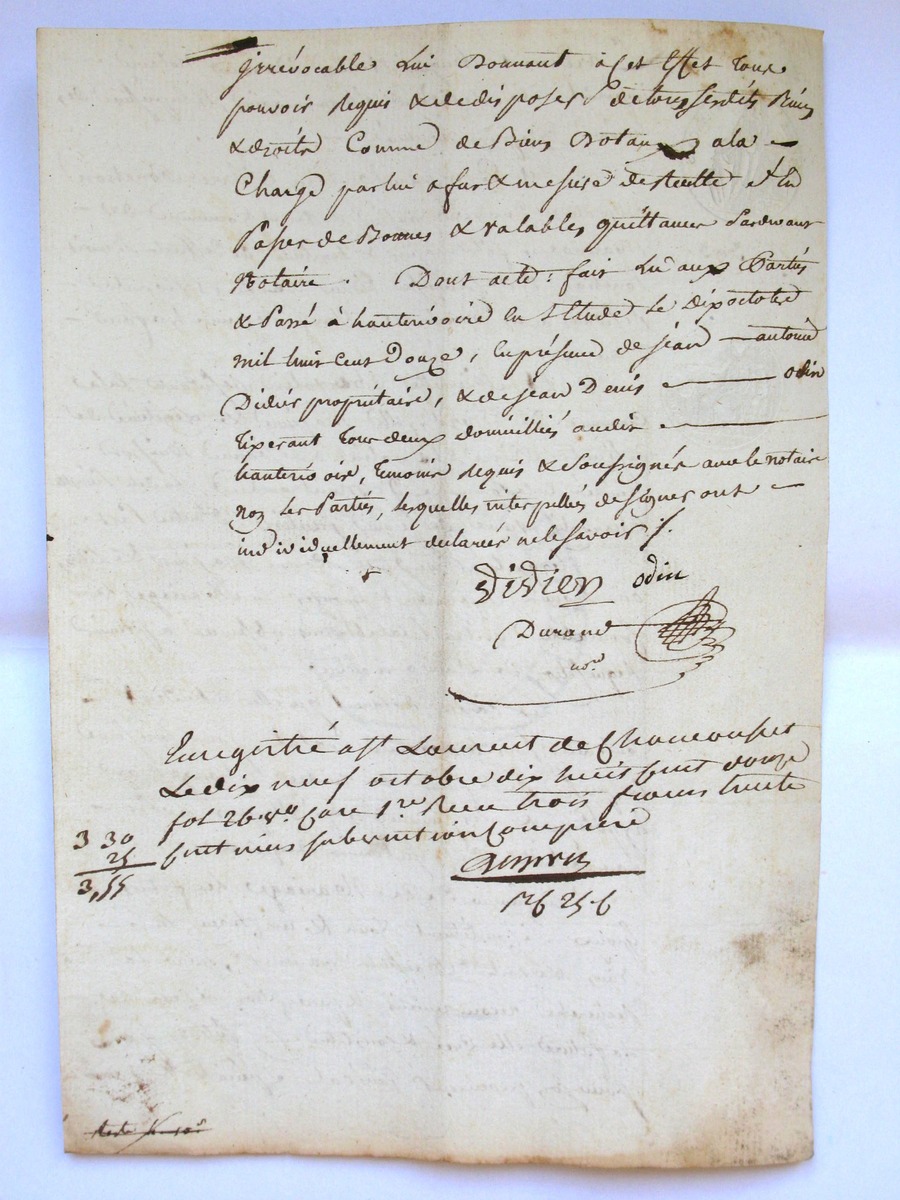 irrévocable Lui Donnant à Cet Effet tous
pouvoir Requis & de disposer de tous sesdits Biens
& droits Comme de Biens Dotaux a la
Charge par lui a fur & mesure de Recette d'En
Passer de Bonnes & valables quittances Pardevant
Notaire. Dont acte: fait Lu aux Parties
& Passé à hauterivoire En l'Etude Le dix octobre
mil huit Cent Douze, En présence de jean antoine
Didier propriétaire, & de jean Denis odin
Tixerant Tous deux domiciliés audit
hauterivoire, témoins Requis & Soussignés avec le notaire
non Les Parties, lesquelles interpellées de signer ont
individuellement déclarées ne le Savoir ./.
Didier odin
Durand
nore
Enregistré a St Laurent de Chamousset
Le dix neuf octobre dix huit Cent douze
fol 26 vo Case 1re Reçu trois francs trente
Centimes subvention Comprise
3 30
25
3,55